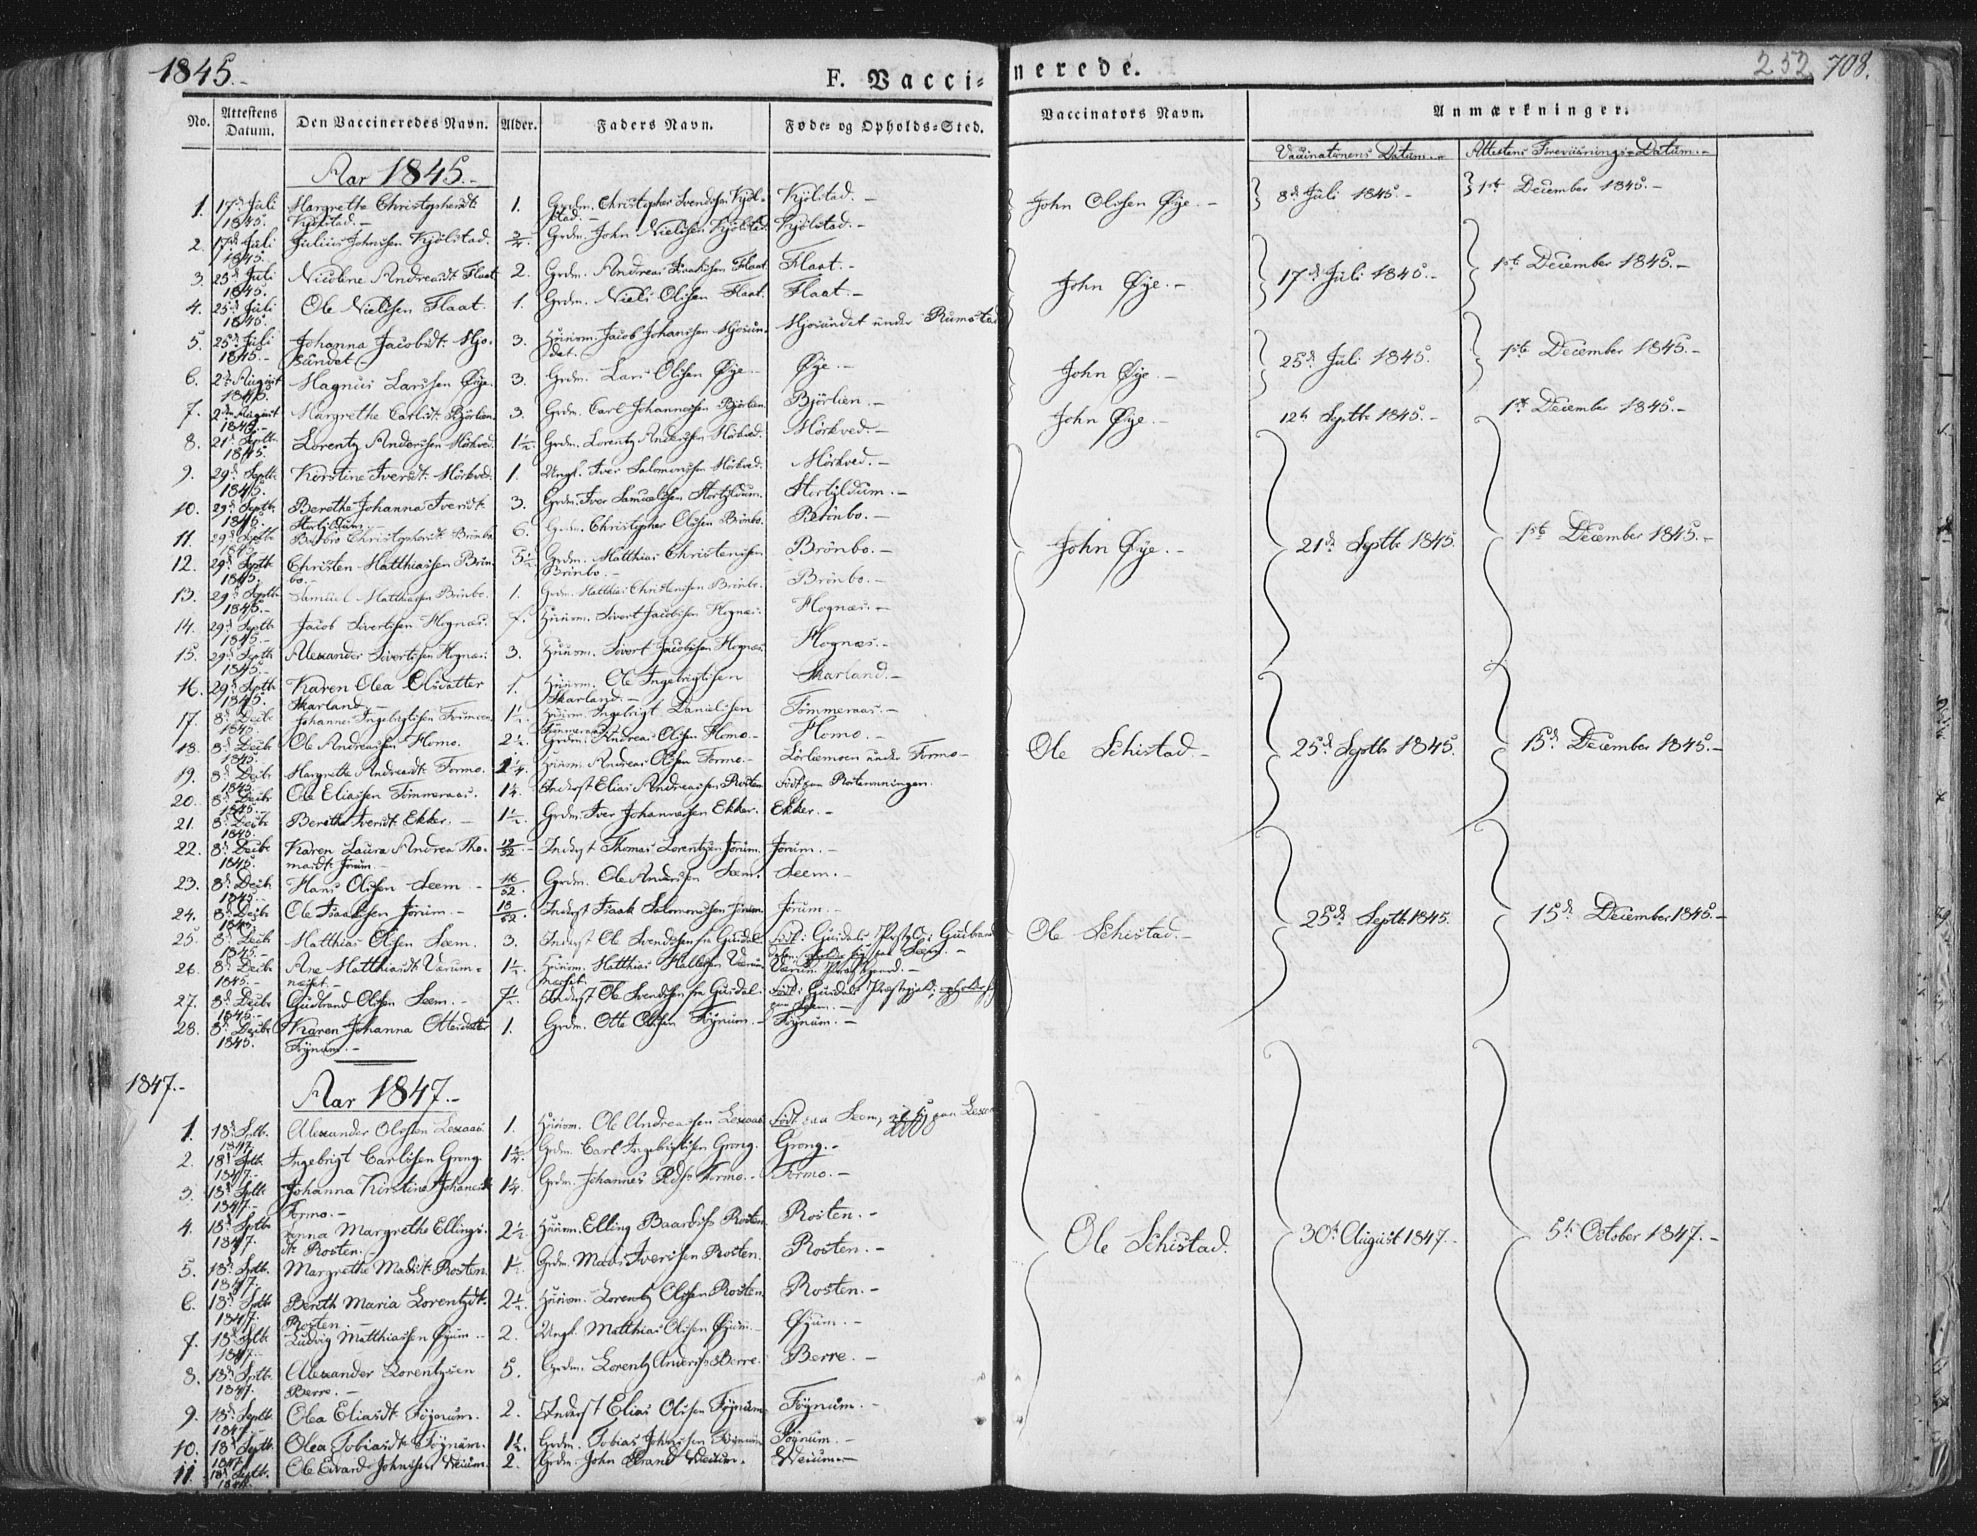 1845.-
F. Vacci-
nerede.
252 708.
No. Attestens Datum. Den Vaccineredes Navn. Alder. Faders Navn. Føde- og Opholds-Sted. Vaccinators Navn. Anmærkninger.
Vaccinationens Datum.- Attestens Foreviisnings-Datum.-
Aar 1845.-
1. 17de Juli 1845. Margrethe Christophersdt: Kjölstad.- 1. Grdm. Christopher Svendsen Kjölstad.- Kjölstad.-
John Olssen Øye.- 8de Juli 1845.- 1ste December 1845.-
2. 17de Juli 1845. Julius Johnssen Kjölstad. Grdm. John Nielssen Kjölstad Kjölstad.-
3. 25de Juli 1845. Nicoline Andreasdt: Flaat 2. Grdm. Andreas Isaaksen Flaat Flaat.-
John Øye.- 17de Juli 1845.- 1ste December 1845.-
4. 25de Juli 1845. Ole Nielssen Flaat. 1. Grdm. Niels Olssen Flaat. Flaat.-
5. 25de Juli 1845.- Johanna Jacobsdt: Mjosundet.- 3. Huusm. Jacob Johanssen Mjosundet. Mjosundet under Rumstad
6. 2den August 1845. Magnus Larssen Øye. 3. Grdm. Lars Olssen Øye.- Øye.-
John Øye.- 25de Juli 1845. 1ste December 1845.-
7. 2den August 1845.- Margrethe Carlsdt: Bjørlien. 3. Grdm. Carl Johannessen Bjørlien Bjørlien.-
John Øye.- 12te Septbr 1845.- 1ste December 1845.-
8. 21de Septbr 1845. Lorentz Anderssen Mörkved. 1½. Grdm. Lorentz Anderssen Mörkved. Mörkved.-
9. 29de Septbr 1845. Kerstine Iversdt: Mörkved. 1. Ungk. Iver Salomonssen Mörkved. Mörkved.-
10. 29de Septbr 1845. Berethe Johanna Iversdt: Stortjldum.- 3. Grdm. Iver Samuelssen Stortjldum. Stortjldum.-
11. 29de Septbr 1845. Barbro Christophersdt: Brönbo 6. Grdm. Christopher Olssen Brönbo. Brönbo.-
John Øye.- 21de Septbr 1845. 1ste December 1845.-
12. 29de Septbr 1845. Christen Matthiassen Brönbo.- 5½. Grdm. Matthias Christenssen Brönbo.- Brönbo.-
13. 29de Septbr 1845.- Samuel Matthiassen Brönbo. 1. Grdm. Matthias Christenssen Brönbo. Brönbo.-
14. 29de Septbr 1845.- Jacob Sivertssen Hognæs. 7. Huusm. Sivert Jacobssen Hognæs. Hognæs.-
15. 29de Septbr 1845. Alexander Sivertssen Hognæs. 3. Huusm. Sivert Jacobssen Hognæs. Hognæs.-
16. 29de Septbr 1845. Karen Olea Olsdatter Skarland.- 1. Huusm. Ole Ingebrigtssen Skarland.- Skarland.-
17. 8de Decbr 1845. Johannes Ingebrigtssen Tömmeraas 1½. Huusm. Ingebrigt Danielssen Tömmeraas.- Tömmeraas.-
18. 8de Decbr 1845. Ole Andreassen Homo. 2½. Grdm. Andreas Olssen Homo.- Homo.-
Ole Schistad.- 25de Septbr 1845. 15de December 1845.-
19. 8de Decbr 1845. Margrethe Andreasdt: Formo. Huusm. Andreas Olssen Formo.- Lörlæmoen under Formo-
20. 8de Decbr 1845. Ole Eliassen Tömmeraas. 1¼. Inderst Elias Andreassen Rosten Født paa Rostenvningen.
21. 8de Decbr 1845. Berethe Iversdt: Ekker.- 1½. Grdm. Iver Johannessen Ekker. Ekker.-
22. 8de Decbr 1845. Karen Laura Andrea Thomasdt: Jörum.- Inderst Thomas Lorentzen Jörum. Jörum.-
23. 8de Decbr 1845.- Hans Olssen Seem.- 16/52. Grdm. Ole Anderssen Seem. Seem.-
24. 8de Decbr 1845. Ole Isaakssen Jörum.- 18/52. Inderst Isaak Salomonssen Jörum Jörum.-
25. 8de Decbr 1845.- Matthias Olssen Seem. 3. Inderst Ole Svendssen fra Gusdal Født i Gusdals Præstgld: i Gudbrands
Ole Schistad.- 25de Septbr 1845. 15de December 1845.-
26. 8de Decbr 1845.- Ane Matthiasdt: Værumnæset.- 1½. Huusm. Matthias Halless Værumnæset.- Værum Præstegaard.-
27. 8de Decbr 1845.- Gudbrand Olssen Seem.- Inderst Ole Svendssen fra Gusdal. Født i Gusdals Præstegjeld;
28. 8de Decbr 1845. Karen Johanna Ottesdatter Föynum.- 1. Grdm. Otte Olssen Föynum.- Föynum.-
1847.-
Aar 1847.-
1. 18de Septbr. 1847. Alexander Olssen Lexaas. 1. Huusm. Ole Andreassen Lexaas. Født paa Seem,
2. 18de Septbr. 1847.- Ingebrigt Carlssen Grong. Grdm. Carl Ingebrigtssen Grong. Grong.-
3. 18de Septbr 1847.- Johanna Kirstine Johansdt: Formo.- 1¼. Grdm. Johannes Formo.- Formo.-
4. 18de Septbr 1847. Anna Margrethe Ellingsdt: Rosten. 2½. Huusm. Elling Baardss Rosten. Rosten.-
Ole Schistad. 30te August 1847.- 5te October 1847.-
5. 18de Septbr. 1847. Margrethe Madsdt: Rosten. 1½. Grdm. Mads Iverssen Rosten. Rosten.-
6. 18de Septbr 1847. Bereth Maria Lorentzdt. Rosten.- 2½. Huusm. Lorentz Olssen Rosten. Rosten.-
7. 18de Septbr. 1847.- Ludvig Matthiassen Øyum.. 2. Ungk. Matthias Olssen Øyum. Øyum.-
8. 18de Septbr. 1847. Alexander Lorentzsen Berre.- 5. Grdm. Lorentz Anderss Berre. Berre.-
9. 18de Septbr. 1847.- Olea Eliasdt: Föynum. 2. Inderst Elias Olssen Föynum. Föynum.-
10. 18de Septbr. 1847. Olea Tobiasdt: Föynum. 1½. Grdm. Tobias Johnssen Föynum Föynum.-
11. 18de Septbr. 1847. Ole Edvard Johnssen Weium. 2. Grdm. John Strand Weium. Weium.-